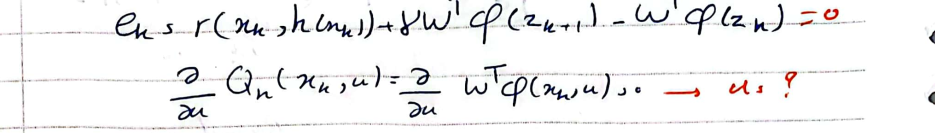 e_k = r(x_k, h(x_k)) + γ W^T φ(z_{k+1}) - W^T φ(z_k) = 0
∂/∂u Q_h(x_k, u) = ∂/∂u W^T φ(x_k, u) = 0 → u = ?